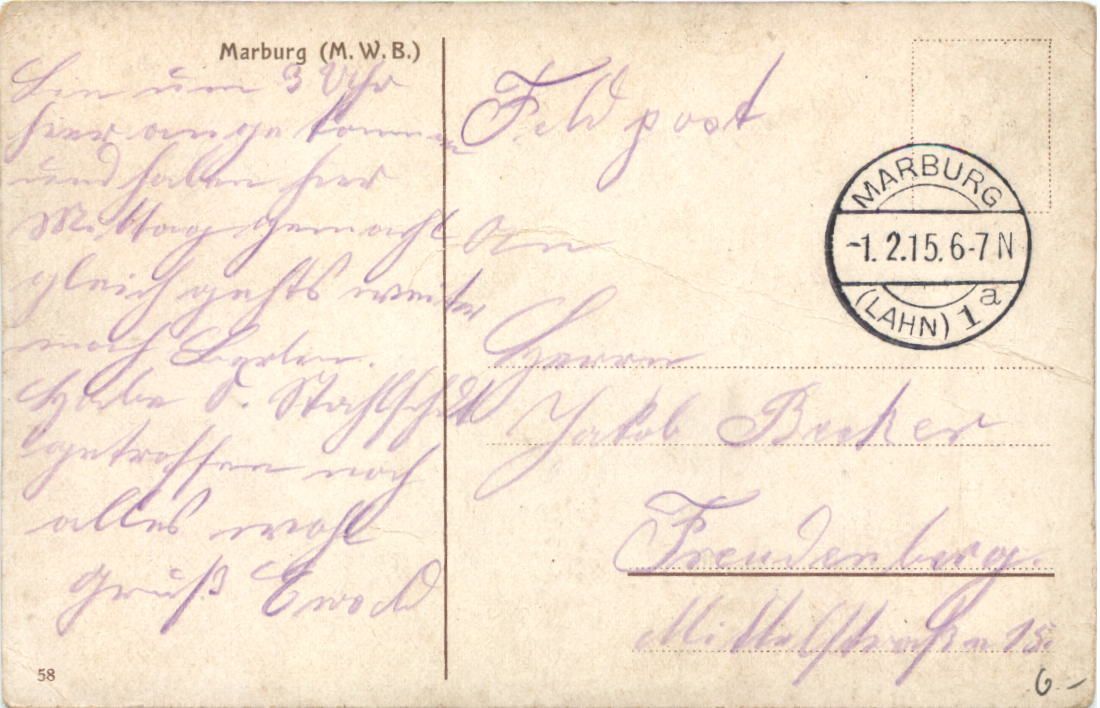 Marburg (M. W. B.)
Bin um 3 Uhr
hier angekommen
und haben hier
Mittag gemacht
gleich gehts weiter
nach Berlin.
Habe
getroffen noch
alles wohl
Gruß Ewald
58
Feldpost
MARBURG
-1.2.15.6-7N
(LAHN) 1a
An
Herrn
Jakob Becker
Freudenberg.
Mittelstraße 18
6.-